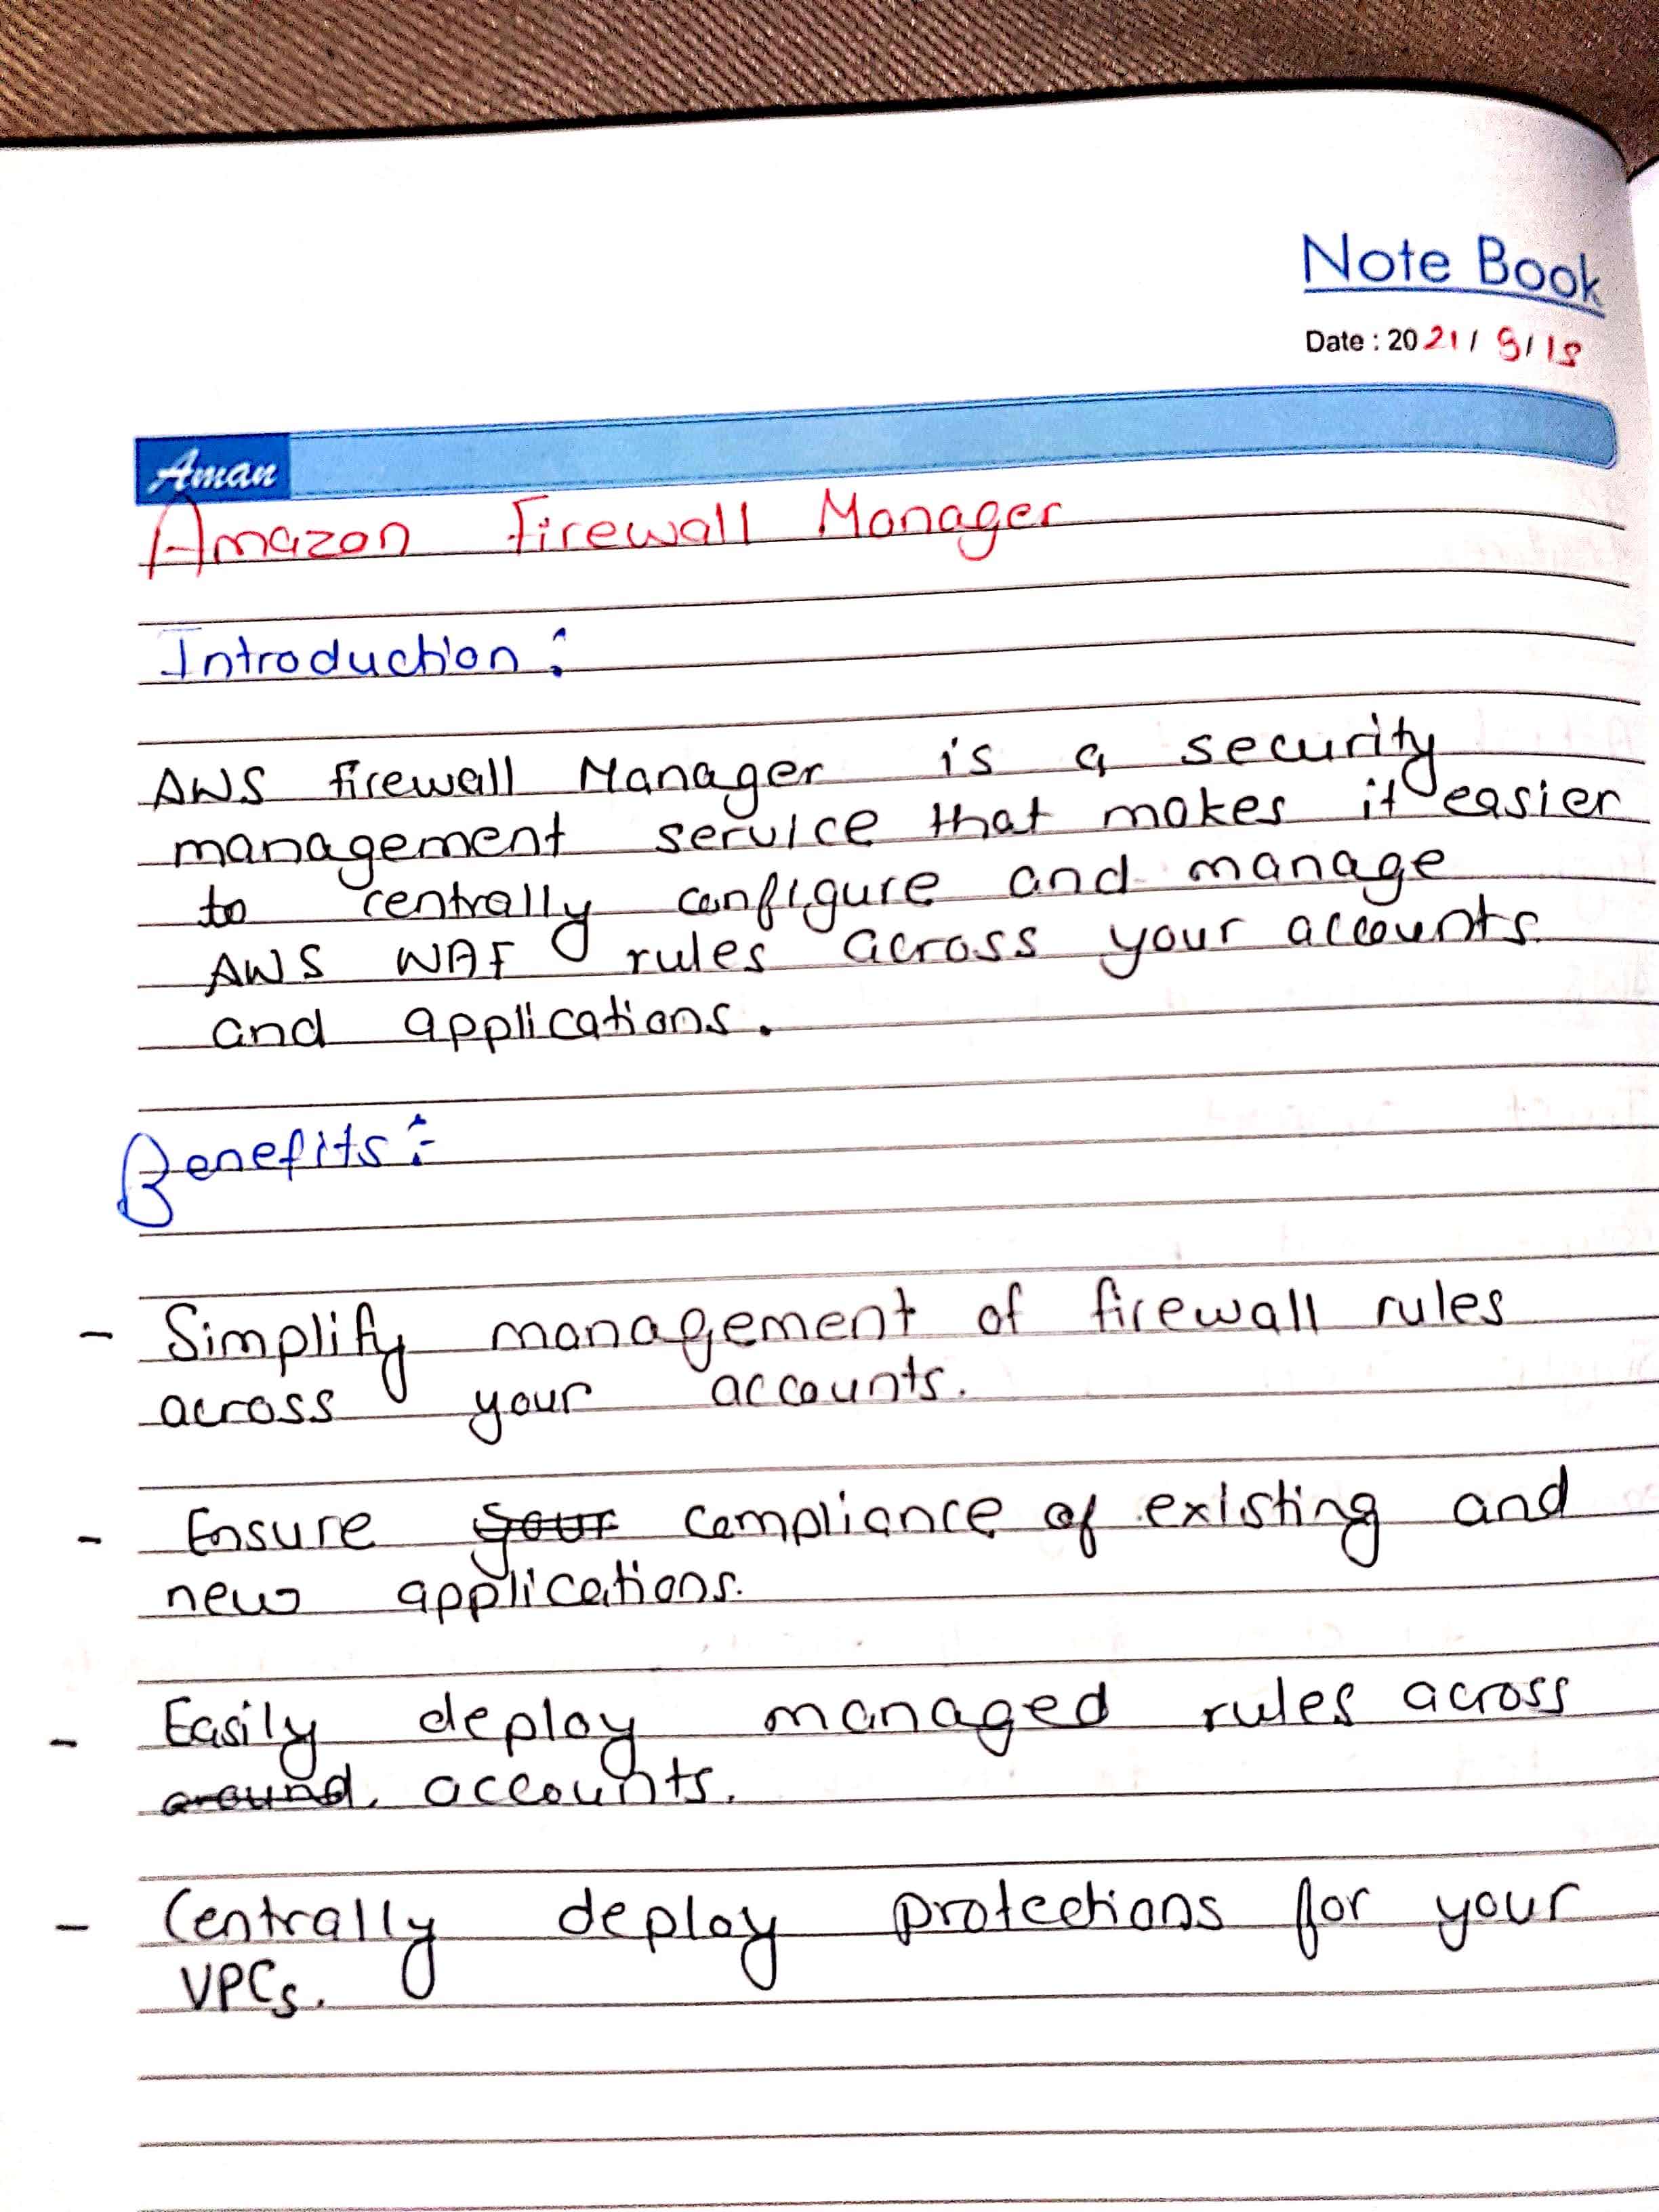 Note Book
Date : 2021 / 9/18
Aman
Amazon Firewall Manager
Introduction :
AWS firewall Manager is a security
management service that makes it easier
to centrally configure and manage
AWS WAF rules across your accounts.
and applications.
Benefits :-
- Simplify management of firewall rules
across your accounts.
- Ensure your compliance of existing and
new applications.
- Easily deploy managed rules across
around. accounts.
- Centrally deploy protections for your
VPCs.